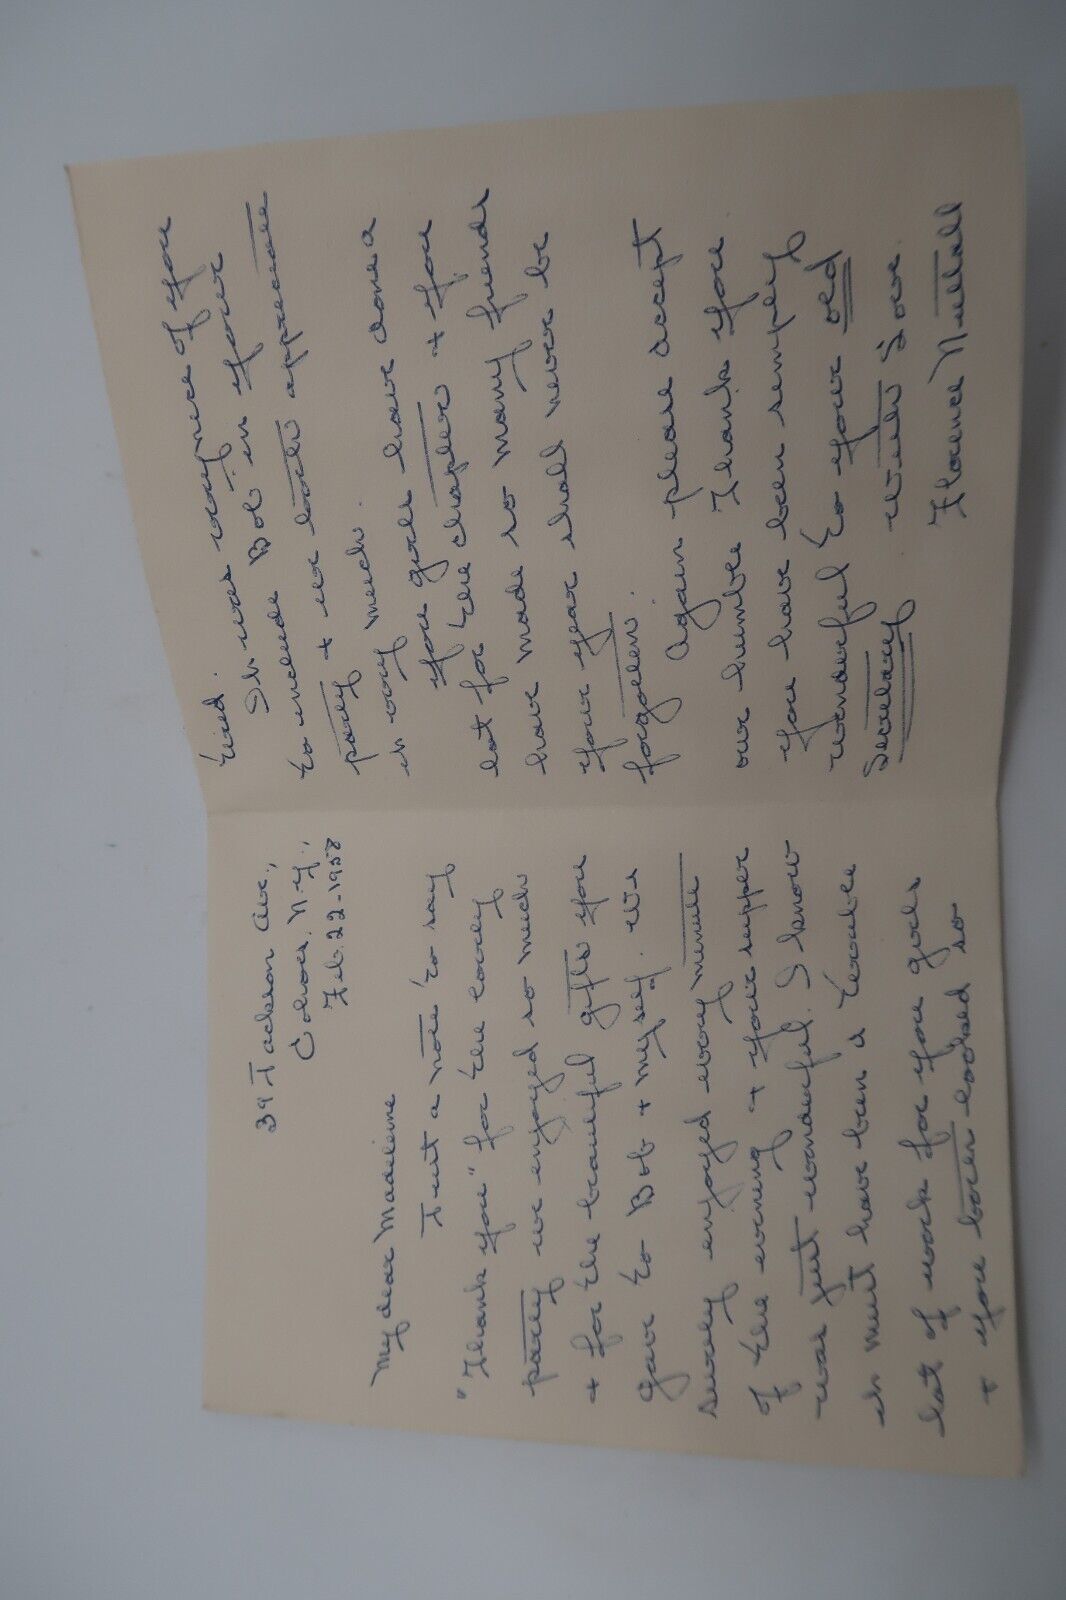 39 Jackson Ave.,
Cohoes, N.Y.,
Feb. 22-1958
My dear Madeleine
Just a note to say
"Thank you" for the lovely
party we enjoyed so much
+ for the beautiful gifts you
gave to Bob + myself. We
surely enjoyed every minute
of the evening + your supper
was just wonderful. I know
it must have been a terrible
lot of work for you girls
+ you both looked so
tired.
It was very nice of you
to include Bob in your
party + we both appreciate
it very much.
You girls have done a
lot for the chapter + you
have made so many friends
your year shall never be
forgotten.
Again please accept
our humble Thank you.
You have been simply
wonderful to your old
Secretary
with Love.
Florence Nuttall